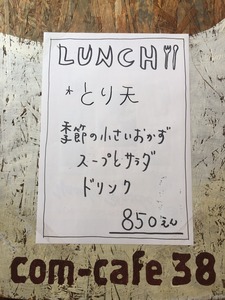 LUNCH
* とり天
季節の小さいおかず
スープとサラダ
ドリンク
850えん
com-cafe 38